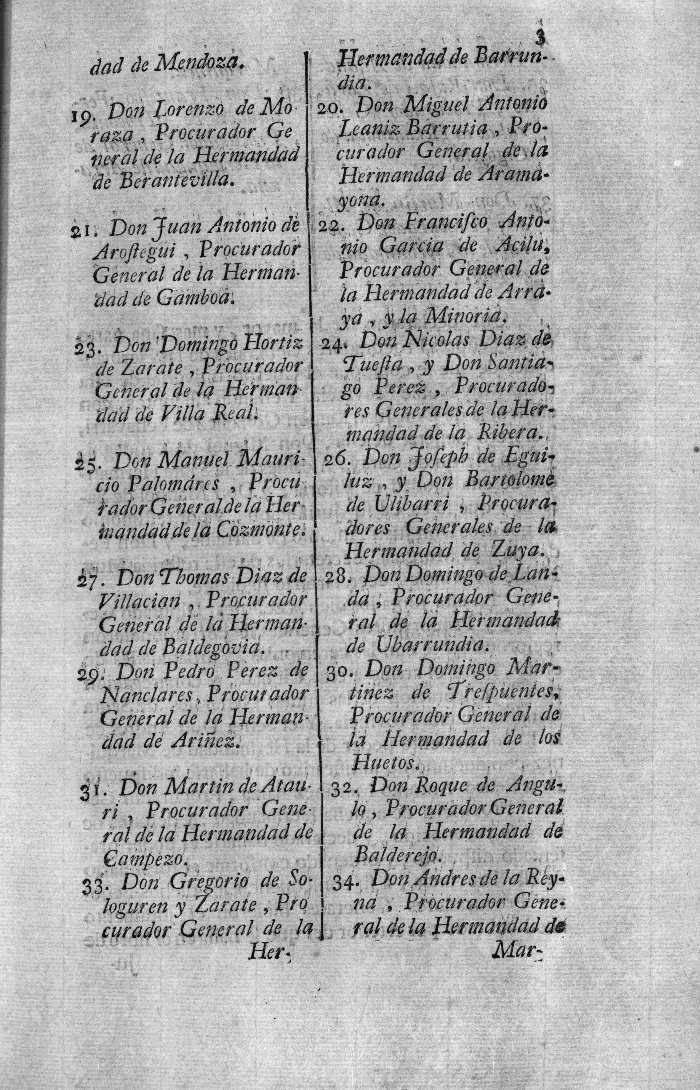 3
dad de Mendoza.
19. Don Lorenzo de Mo
raza, Procurador Ge
neral de la Hermandad
de Berantevilla.
21. Don Juan Antonio de
Aroſtegui, Procurador
General de la Herman-
dad de Gamboa.
23. Don Domingo Hortiz
de Zarate, Procurador
General de la Herman
dad de Villa Real.
25. Don Manuel Mauri-
cio Palomáres, Procu
rador General de la Her
mandad de la Cozmonte.
27. Don Thomas Diaz de
Villacian, Procurador
General de la Herman-
dad de Baldegovia.
29. Don Pedro Perez de
Nanclares, Procurador
General de la Herman-
dad de Ariñez.
31. Don Martin de Atau-
ri, Procurador Gene-
ral de la Hermandad de
Campezo.
33. Don Gregorio de So-
loguren y Zarate, Pro
curador General de la
Her-
Hermandad de Barrun-
dia.
20. Don Miguel Antonio
Leaniz Barrutia, Pro-
curador General de la
Hermandad de Arama-
yona.
22. Don Franciſco Anto-
nio Garcia de Acilu,
Procurador General de
la Hermandad de Arra-
ya, y la Minoria.
24. Don Nicolas Diaz de
Tueſta, y Don Santia-
go Perez, Procurado-
res Generales de la Her-
mandad de la Ribera.
26. Don Joſeph de Egui-
luz, y Don Bartolomè
de Ulibarri, Procura-
dores Generales de la
Hermandad de Zuya.
28. Don Domingo de Lan-
da, Procurador Gene-
ral de la Hermandad
de Ubarrundia.
30. Don Domingo Mar-
tinez de Treſpuentes,
Procurador General de
la Hermandad de los
Huetos.
32. Don Roque de Angu-
lo, Procurador General
de la Hermandad de
Balderejo.
34. Don Andres de la Rey-
na, Procurador Gene-
ral de la Hermandad de
Mar-